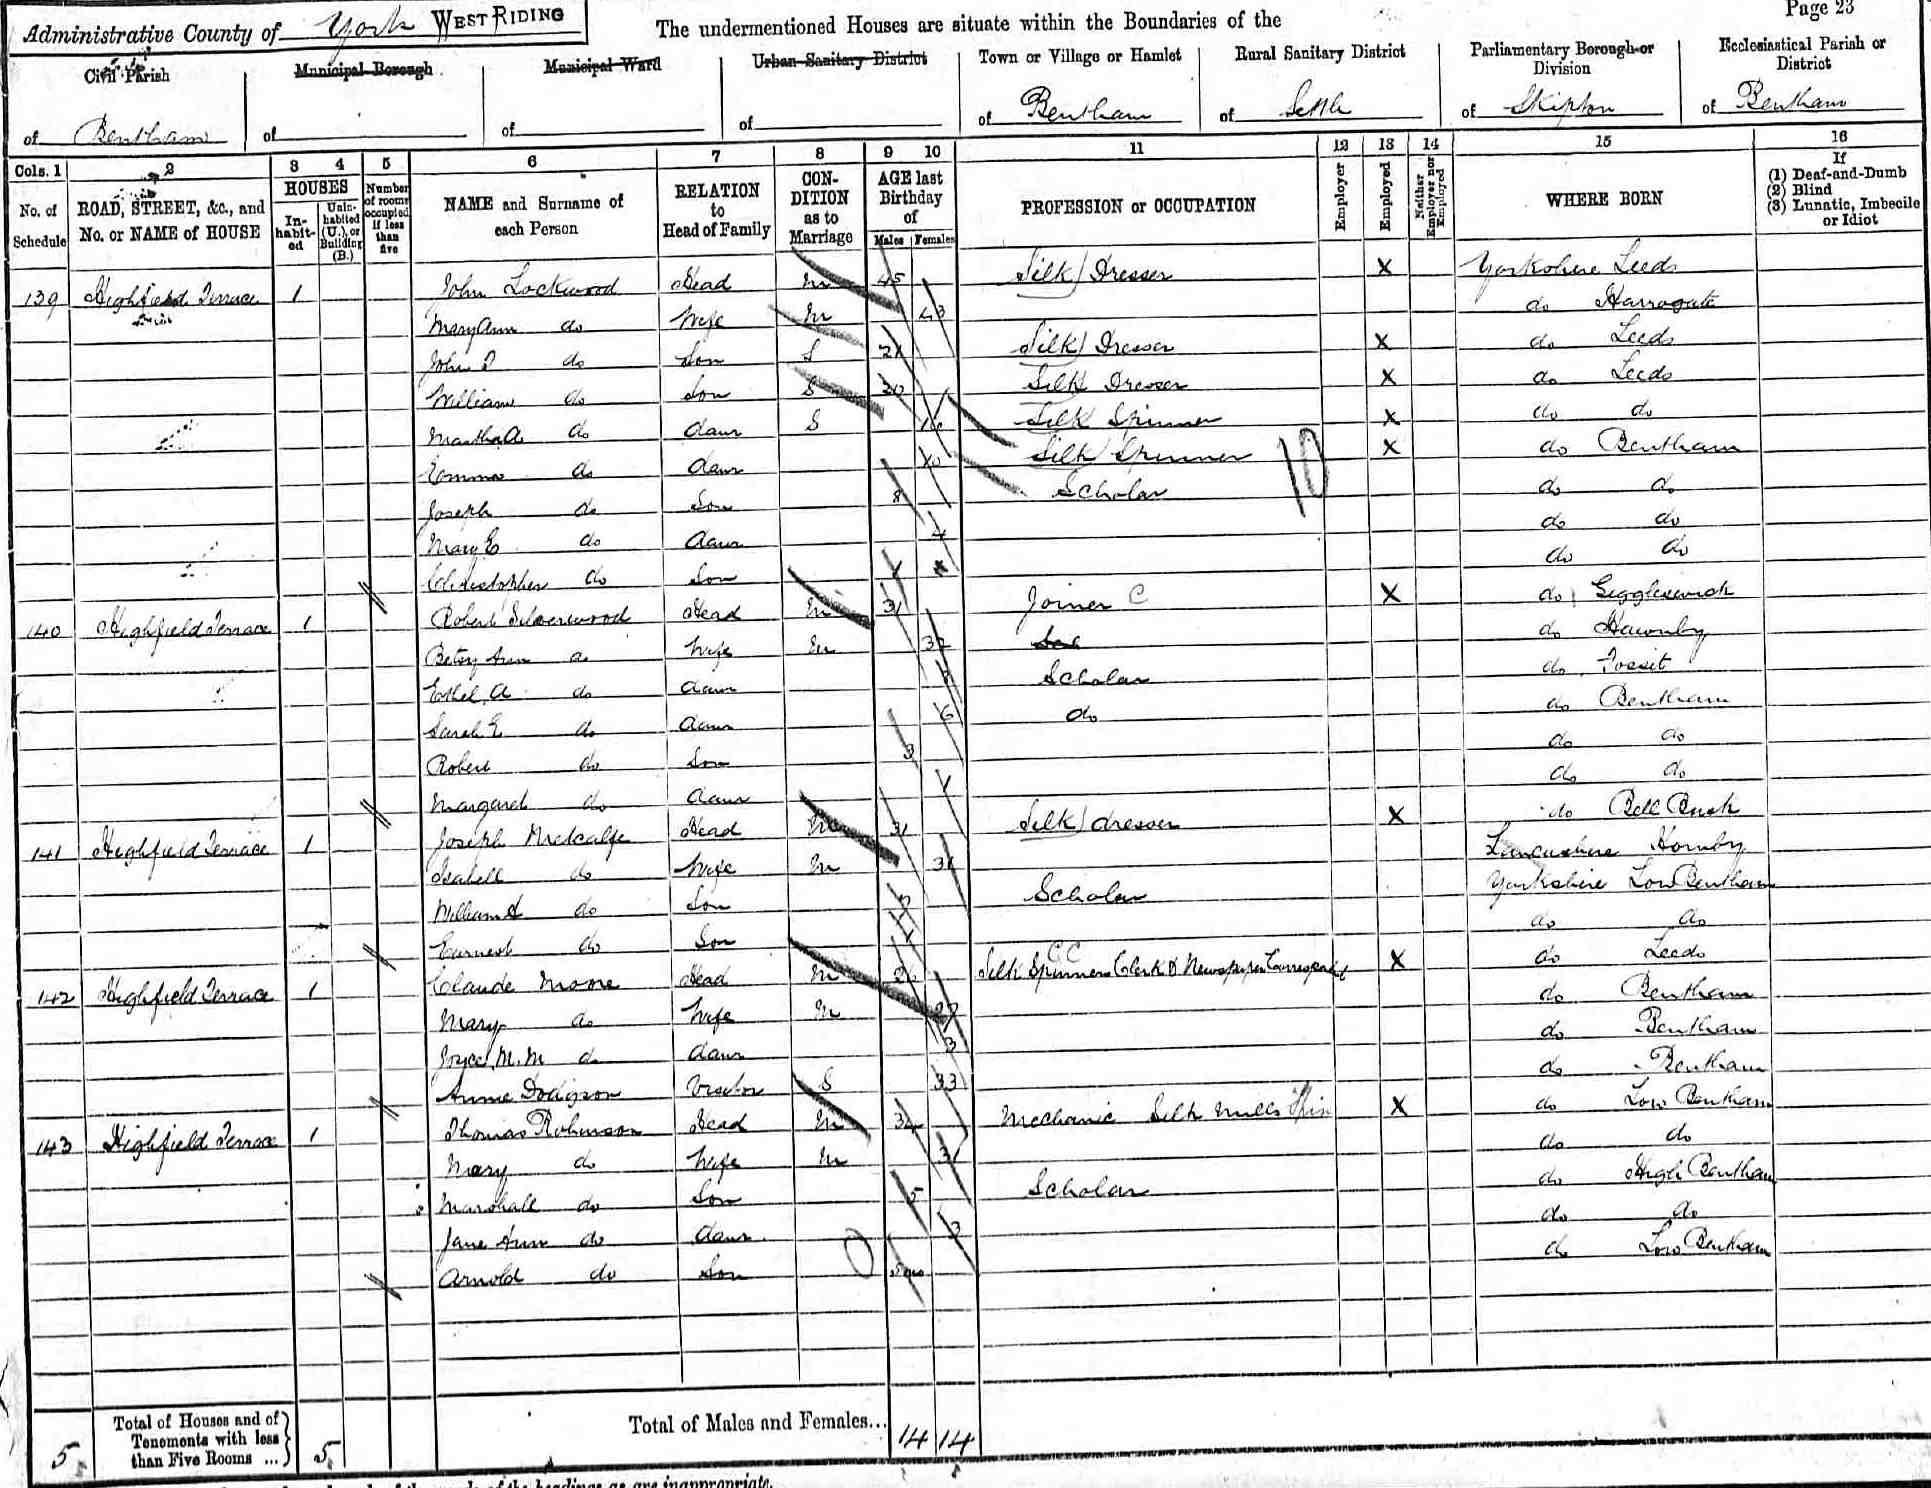 Page 23
Administrative County of York WEST RIDING The undermentioned Houses are situate within the Boundaries of the
Civil Parish Municipal Borough Municipal Ward Urban Sanitary District Town or Village or Hamlet Rural Sanitary District Parliamentary Borough or Division Ecclesiastical Parish or District
of Bentham of of of of Bentham of Settle of Skipton of Bentham
Cols. 1 2 3 4 5 6 7 8 9 10 11 12 13 14 15 16
No. of Schedule ROAD, STREET, &c., and No. or NAME of HOUSE HOUSES In-habit-ed Unin-habited (U.), or Building (B.) Number of rooms occupied if less than five NAME and Surname of each Person RELATION to Head of Family CON-DITION as to Marriage AGE last Birthday of Males Females PROFESSION or OCCUPATION Employer Employed Neither Employer nor Employed WHERE BORN If (1) Deaf-and-Dumb (2) Blind (3) Lunatic, Imbecile or Idiot
139 Highfield Terrace 1 John Lockwood Head M 45 Silk Dresser X Yorkshire Leeds
Mary Ann do Wife M 43 do Harrogate
John do Son S 21 Silk Dresser X do Leeds
William do Son S 20 Silk Dresser X do Leeds
Martha A do Daur S Silk Spinner X do do
Emma do Daur 10 Silk Spinner X do Bentham
Joseph do Son 8 Scholar do do
Mary E do Daur 4 do do
Christopher do Son 1 do do
140 Highfield Terrace 1 Robert Silverwood Head M 31 Joiner C X do Giggleswick
Betsy Ann do Wife M 32 do Hawnby
Ethel A do Daur 8 Scholar do
Sarah E do Daur 6 do do Bentham
Robert do Son 3 do do
Margaret do Daur 1 do do
141 Highfield Terrace 1 Joseph Metcalfe Head M 31 Silk dresser X do Bell Busk
Isabell do Wife M 31 Lancashire Hornby
William do Son Scholar Yorkshire Low Bentham
Earnest do Son 1 do do
142 Highfield Terrace 1 Claude Moore Head M 26 Silk Spinners Clerk & Newspaper Correspondent CC X do Leeds
Mary do Wife M 27 do Bentham
Joyce M. M do Daur 3 do Bentham
Annie Dodgson Visitor S 33 do Bentham
143 Highfield Terrace 1 Thomas Robinson Head M 34 Mechanic Silk Mills X do Low Bentham
Mary do Wife M 31 do do
Marshall do Son 5 Scholar do High Bentham
Jane Ann do Daur 3 do do
Arnold do Son 5mo do Low Bentham
5 Total of Houses and of Tenements with less than Five Rooms ... 5 Total of Males and Females... 14 14